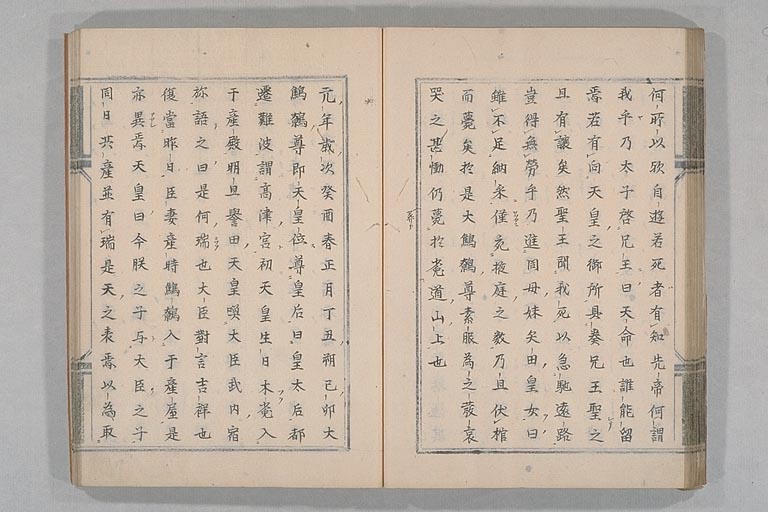 何所以欤自遊若死者有知先帝何謂
我乎乃太子啓兄王曰天命也誰能留
焉若有向天皇之御所具奏兄王聖之
且有讓矣然聖王聞我死以急馳遠路
豈得無勞乎乃進同母妹矣田皇女曰
雖不足納采僅宛掖庭之數乃且伏棺
而薨矣於是大鷦鷯尊素服為之發哀
哭之甚慟仍葬於菟道山上也
元年歲次癸酉春正月丁丑朔己卯大
鷦鷯尊即天皇位尊皇后曰皇太后都
遷難波謂高津宮初天皇生日木菟入
于産殿明旦譽田天皇喚大臣武内宿
祢語之曰是何瑞也大臣對言吉祥也
復當昨日臣妻産時鷦鷯入于産屋是
亦異焉天皇曰今朕之子与大臣之子
同日共産並有瑞是天之表焉以為取